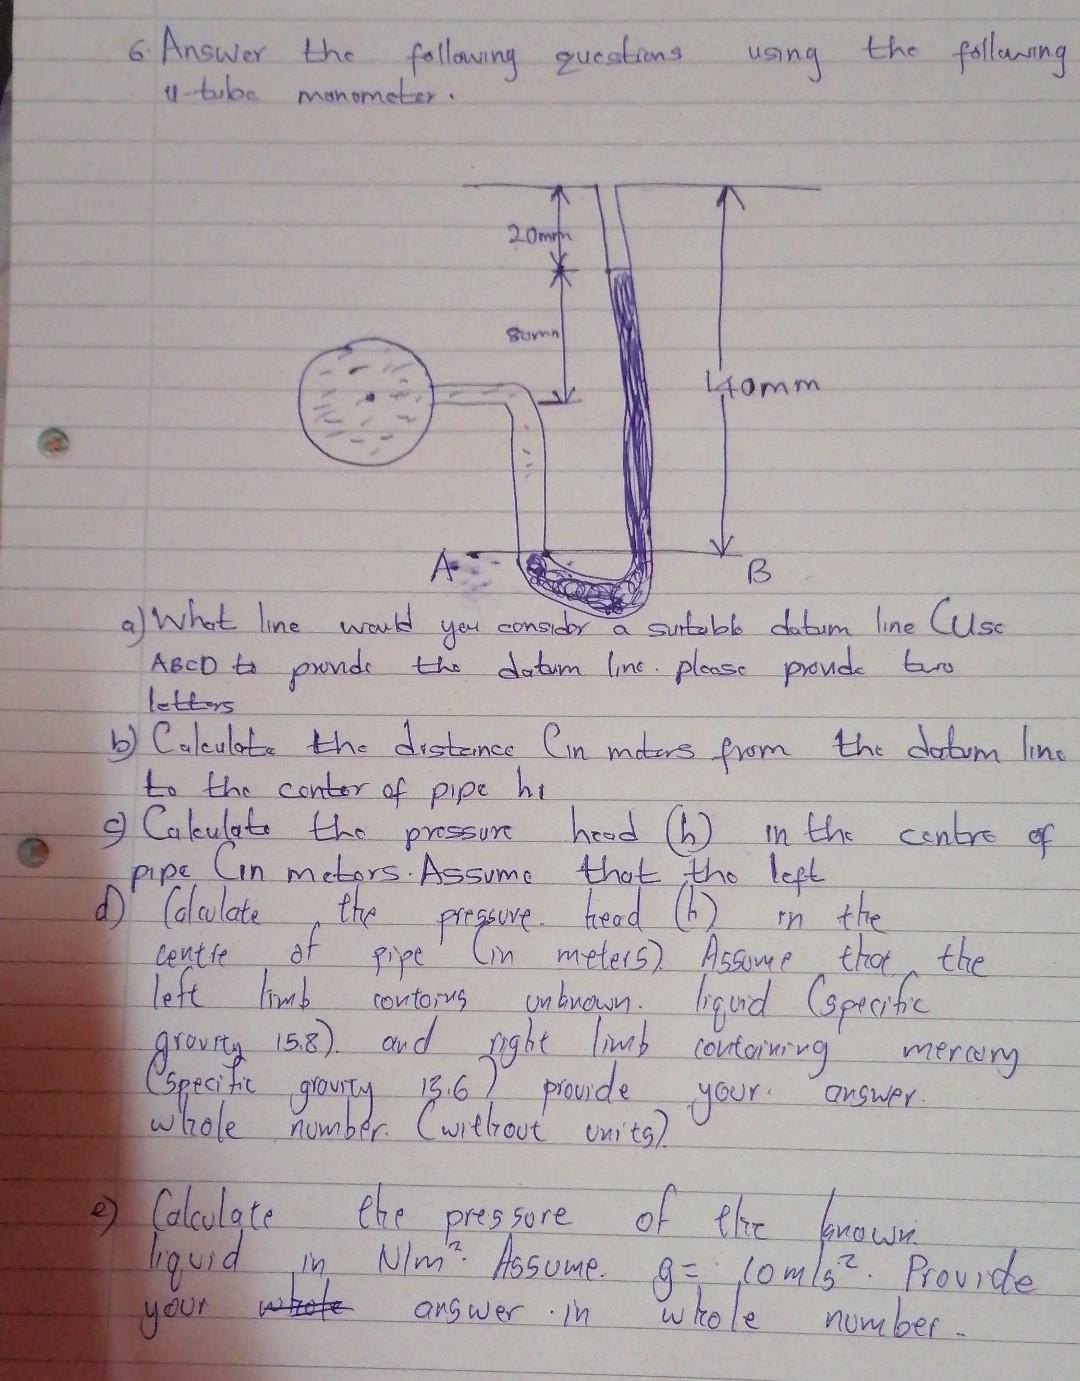 6. Answer the following questions using the following
u-tube manometer.
20mm
80mm
40mm
A
B
a) What line would you consider a suitable datum line (Use
ABCD to provide the datum line. please provide two
letters
b) Calculate the distance (in meters from the datum line
to the center of pipe h1
c) Calculate the pressure head (h) in the centre of
pipe (in meters. Assume that the left
d) Calculate the pressure. head (h) in the
centre of pipe (in meters). Assume that the
left limb contains unknown. liquid (specific
gravity 15.8). and right limb containing mercury
(specific gravity 13.6) provide your. answer.
whole number. (without units)
e) Calculate the pressure of the known
liquid in N/m². Assume. g= 10m/s². Provide
your whole answer in whole number.